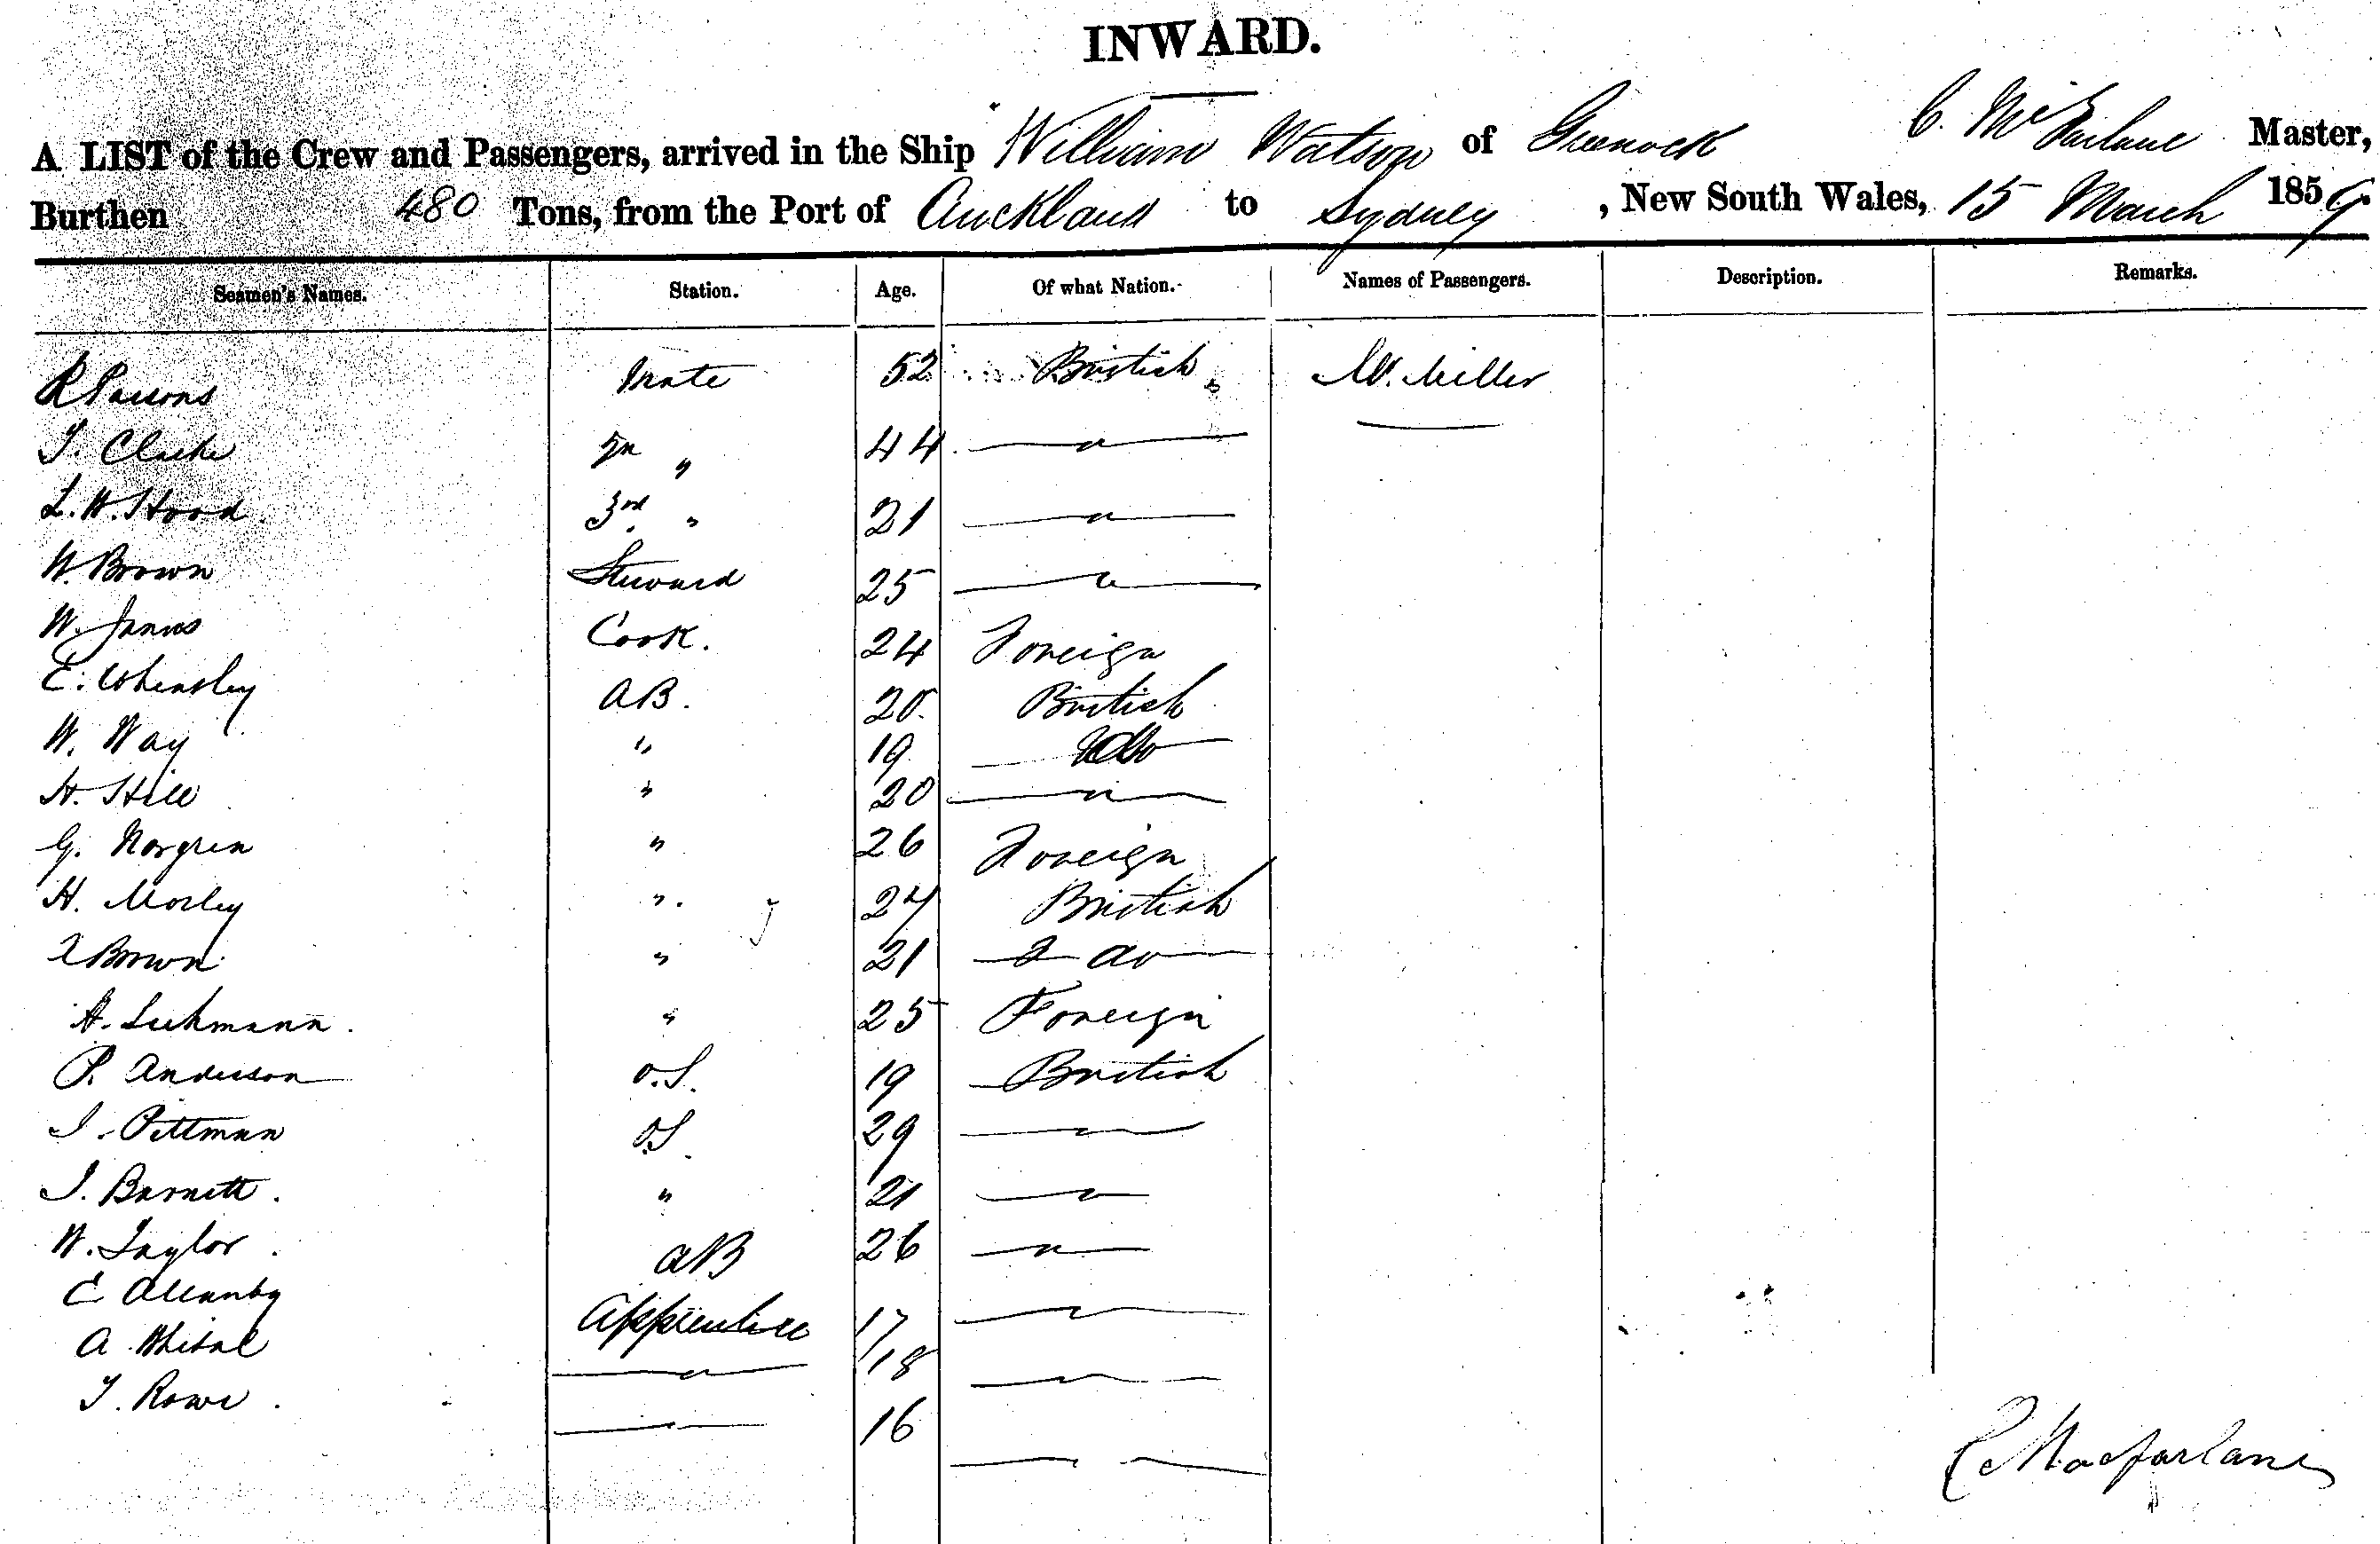 INWARD.
A LIST of the Crew and Passengers, arrived in the Ship William Watson of Greenock C. McFarlane Master,
Burthen 480 Tons, from the Port of Auckland to Sydney, New South Wales, 15 March 1859.
Seamen's Names. Station. Age. Of what Nation. Names of Passengers. Description. Remarks.
R Parsons Mate 52 British W. Miller
T. Clarke 2n " 44 "
L. H. Hood 3rd " 21 "
W. Brown Steward 25 "
W. Cook. 24 Foreign
E. AB. 20 British
W. Way " 19 do
H. Hill " 20 "
G. Norgren " 26 Foreign
H. Morley " 27 British
Brown " 21 do
A. " 25 Foreign
P. Anderson O.S. 19 British
J. Pittman O.S. 29 "
J. Barnett. " 21 "
W. Taylor. AB 26 "
E Allanby Apprentice 17 "
A " 18 "
T. Rowe. " 16 "
C Macfarlane